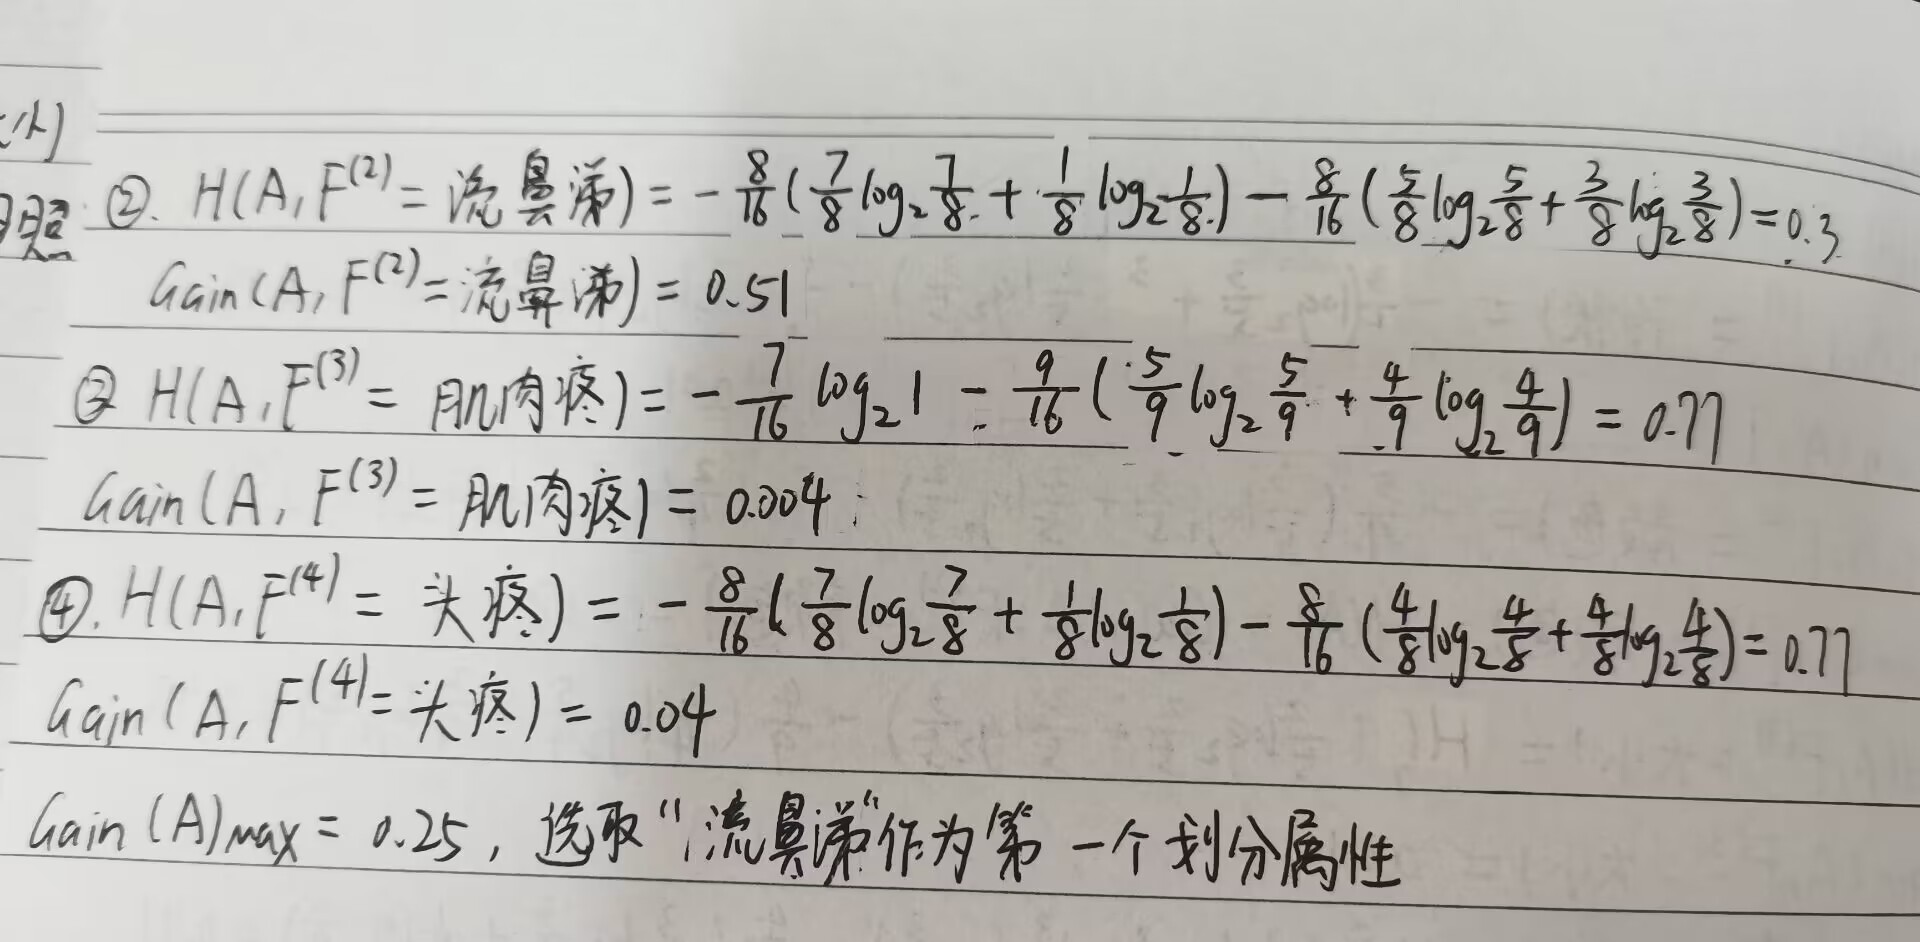 ②. H(A, F⁽²⁾ = 流鼻涕) = - 8/16 ( 7/8 log₂ 7/8 + 1/8 log₂ 1/8 ) - 8/16 ( 5/8 log₂ 5/8 + 3/8 log₂ 3/8 ) = 0.3
Gain(A, F⁽²⁾ = 流鼻涕) = 0.51
③ H(A, F⁽³⁾ = 肌肉疼) = - 7/16 log₂ 1 - 9/16 ( 5/9 log₂ 5/9 + 4/9 log₂ 4/9 ) = 0.77
Gain(A, F⁽³⁾ = 肌肉疼) = 0.004
④. H(A, F⁽⁴⁾ = 头疼) = - 8/16 ( 7/8 log₂ 7/8 + 1/8 log₂ 1/8 ) - 8/16 ( 4/8 log₂ 4/8 + 4/8 log₂ 4/8 ) = 0.77
Gain(A, F⁽⁴⁾ = 头疼) = 0.04
Gain(A)max = 0.25, 选取"流鼻涕"作为第一个划分属性